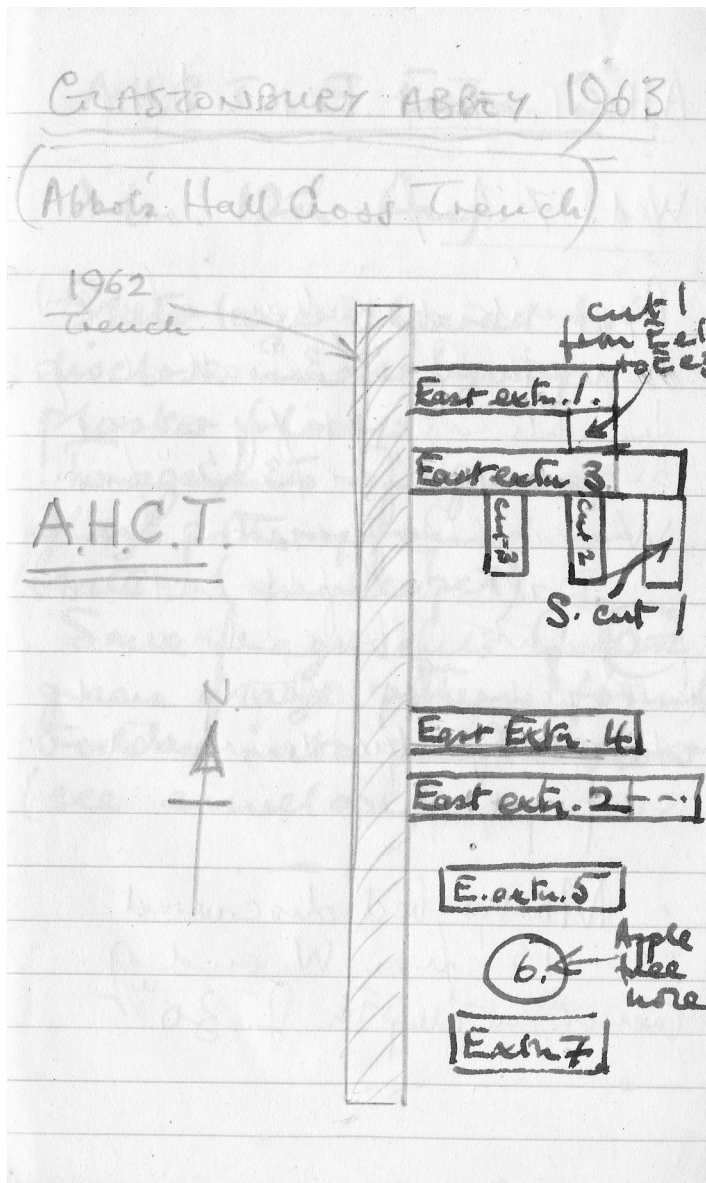 GLASTONBURY ABBEY 1963
(Abbot's Hall Cross Trench)
1962
Trench
cut 1
from E e1
to E e3
East extn. 1.
East extn 3
cut 3
cut 2
A.H.C.T.
S. cut 1
N.
East Extn. 4
East extn. 2
E. extn. 5
6.
Apple
tree
Extn 7